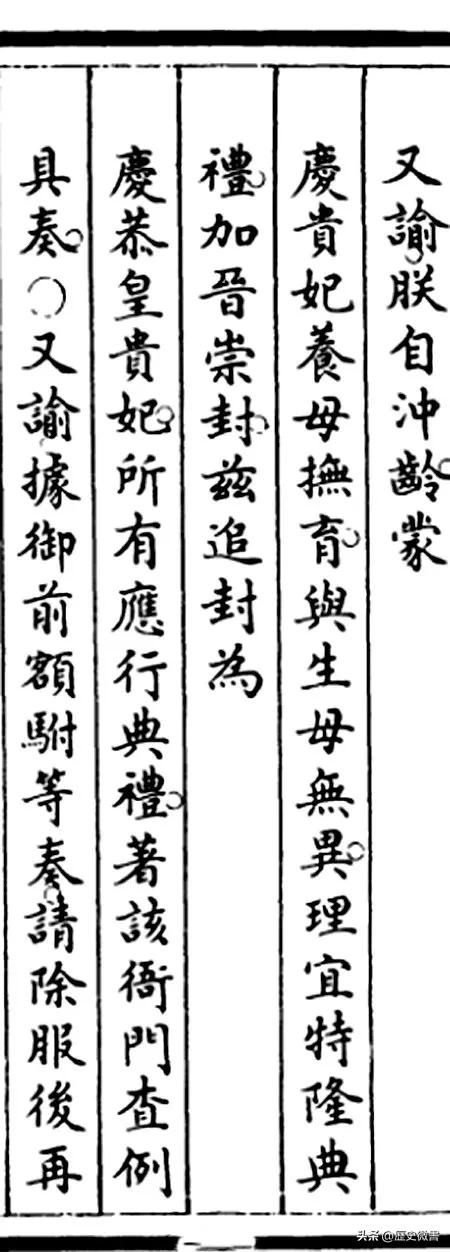 又諭朕自沖齡蒙
慶貴妃養母撫育與生母無異理宜特隆典
禮加晉崇封茲追封為
慶恭皇貴妃所有應行典禮著該衙門查例
具奏○又諭據御前額駙等奏請除服後再
头条@歷史微書